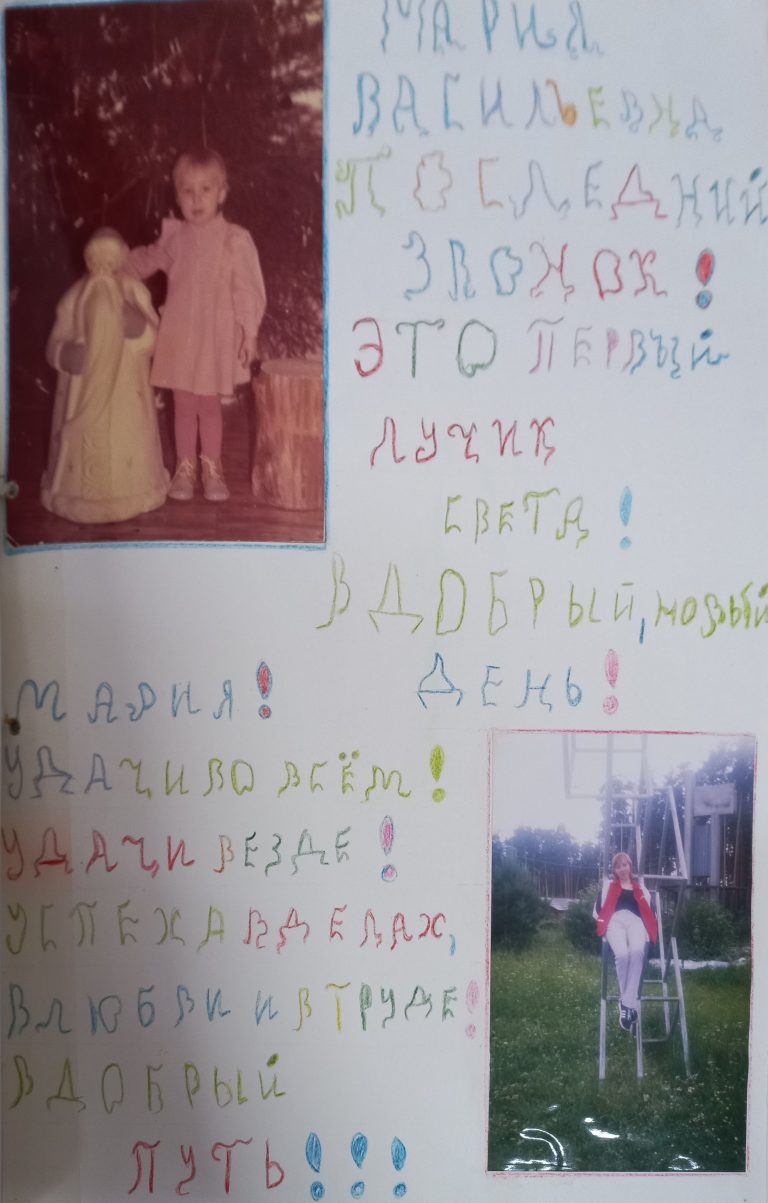 МАРИЯ
ВАСИЛЬЕВНА
ПОСЛЕДНИЙ
ЗВОНОК!
ЭТО ПЕРВЫЙ
ЛУЧИК
СВЕТА!
В ДОБРЫЙ, НОВЫЙ
ДЕНЬ!
МАРИЯ!
УДАЧИ ВО ВСЁМ!
УДАЧИ ВЕЗДЕ!
УСПЕХА В ДЕЛАХ,
В ЛЮБВИ И В ТРУДЕ!
В ДОБРЫЙ
ПУТЬ!!!